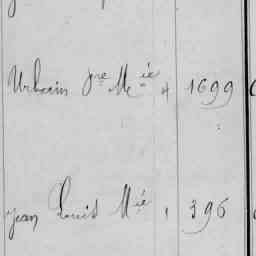 Urbain Pre Mié 4 1699
Jean Louis Mié 1 396